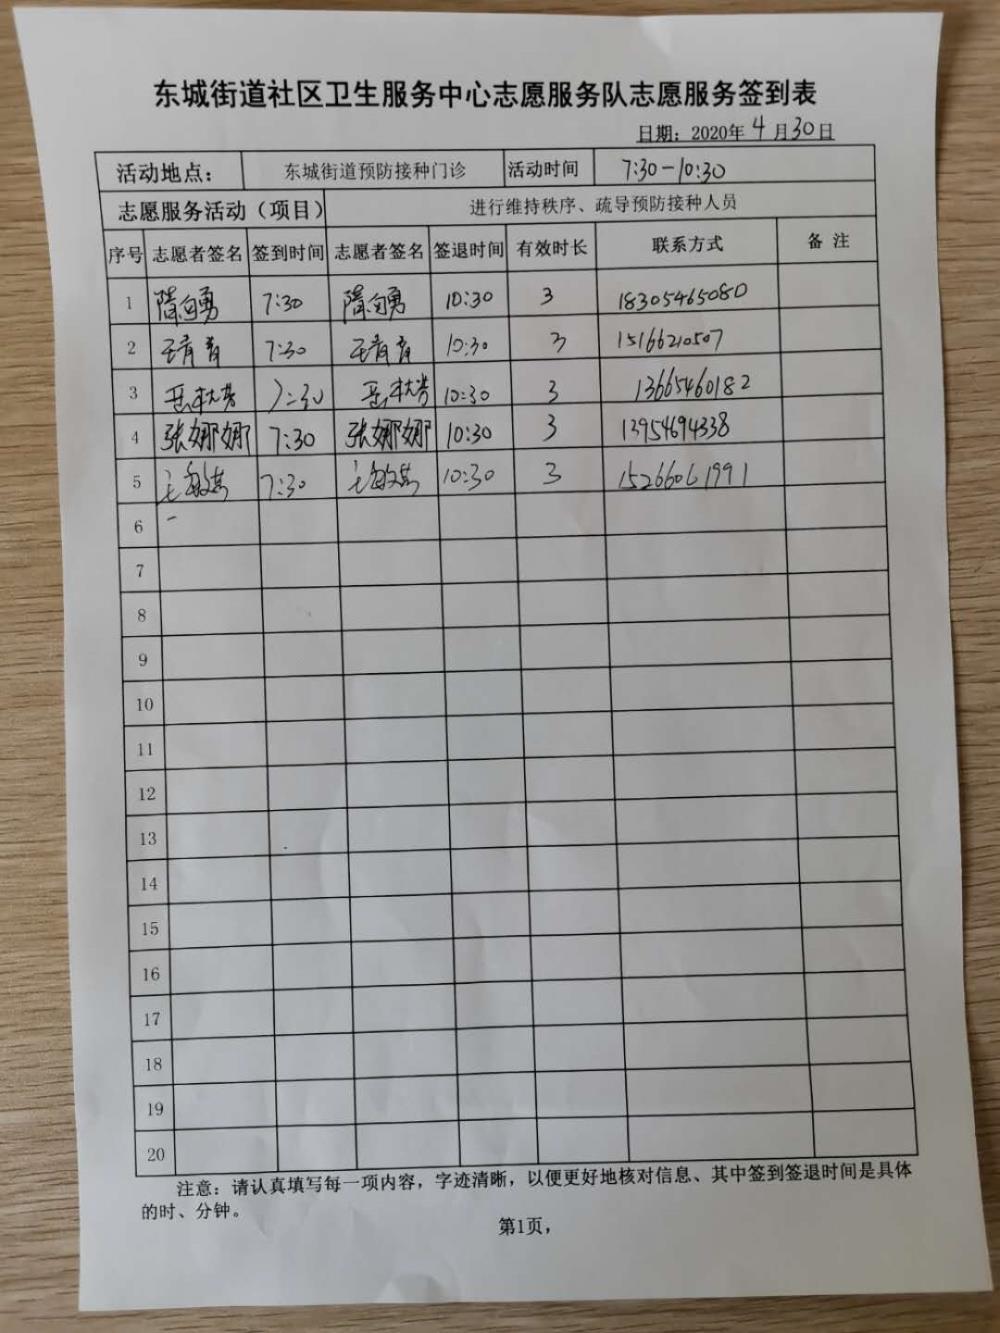 东城街道社区卫生服务中心志愿服务队志愿服务签到表
日期：2020年 4 月 30 日
活动地点： 东城街道预防接种门诊 活动时间 7:30-10:30
志愿服务活动（项目） 进行维持秩序、疏导预防接种人员
序号 志愿者签名 签到时间 志愿者签名 签退时间 有效时长 联系方式 备 注
1 隋向勇 7:30 隋向勇 10:30 3 18305465080
2 7:30 10:30 3 15166210507
3 7:30 10:30 3 13665460182
4 张娜娜 7:30 张娜娜 10:30 3 13954694338
5 7:30 10:30 3 15266061991
6
7
8
9
10
11
12
13
14
15
16
17
18
19
20
注意：请认真填写每一项内容，字迹清晰，以便更好地核对信息、其中签到签退时间是具体
的时、分钟。
第1页，